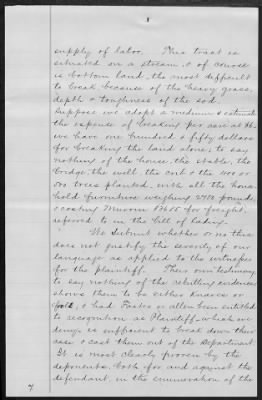 8
supply of labor. This tract is
situated on a stream, & of course
is bottom land, the most difficult
to break because of the heavy grass,
depth & toughness of the sod.
Suppose we adopt a medium & estimate
the expense of breaking per acre at $6.
we have one hundred & fifty dollars
for breaking the land alone, to say
nothing of the house, the stable, the
bridge, the well, the crib & the 400 or
500 trees planted, with all the house
hold furniture weighing 2470 pounds,
& costing for freight,
referred to in the bill of lading.
We submit whether or no this
does not justify the severity of our
language as applied to the witnesses
for the plaintiff. Their own testimony
to say nothing of the rebutting evidence
shows them to be either Knaves or
fools, & had Fates or allen been entitled
to recognition as Plaintiff, which we
deny, is sufficient to break down their
case & cast them out of the Department.
It is most clearly proven by the
deponents, both for and against the
defendant, in the enumeration of the
7